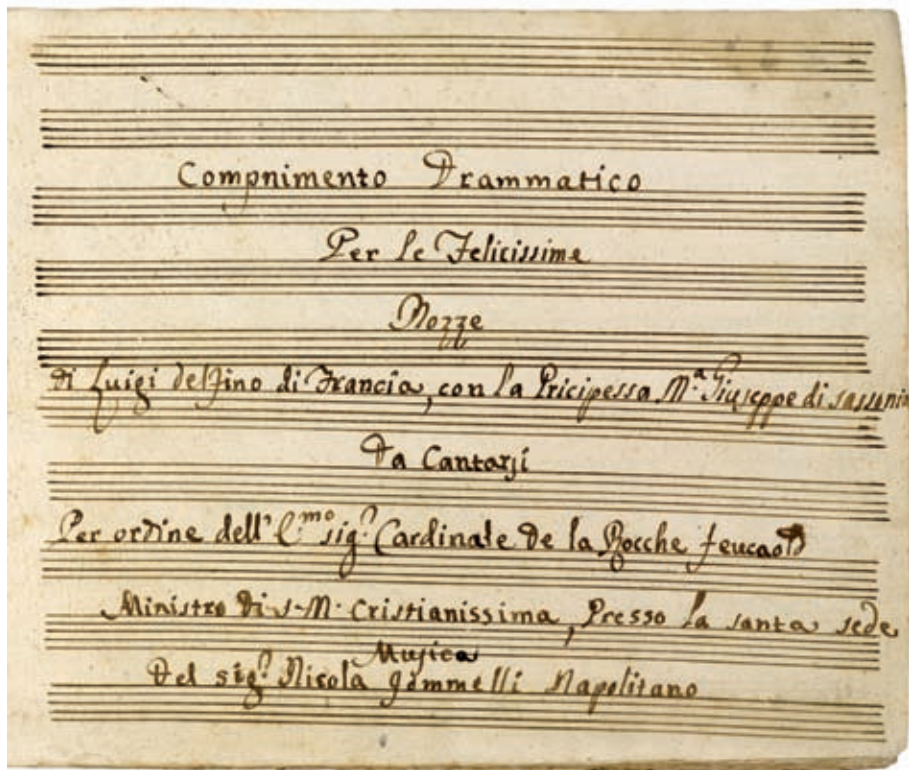 Compnimento Drammatico
Per le Felicissime
Nozze
di Luigi delfino di Francia, con la Pricipessa M.ª Giuseppe di sassonia
Da Cantarsi
Per ordine dell' E.mo sig.r Cardinale de la Rocche feucaolD
Ministro di S. M. Cristianissima, Presso la santa sede
Musica
Del sig.r Nicola Jommelli Napolitano